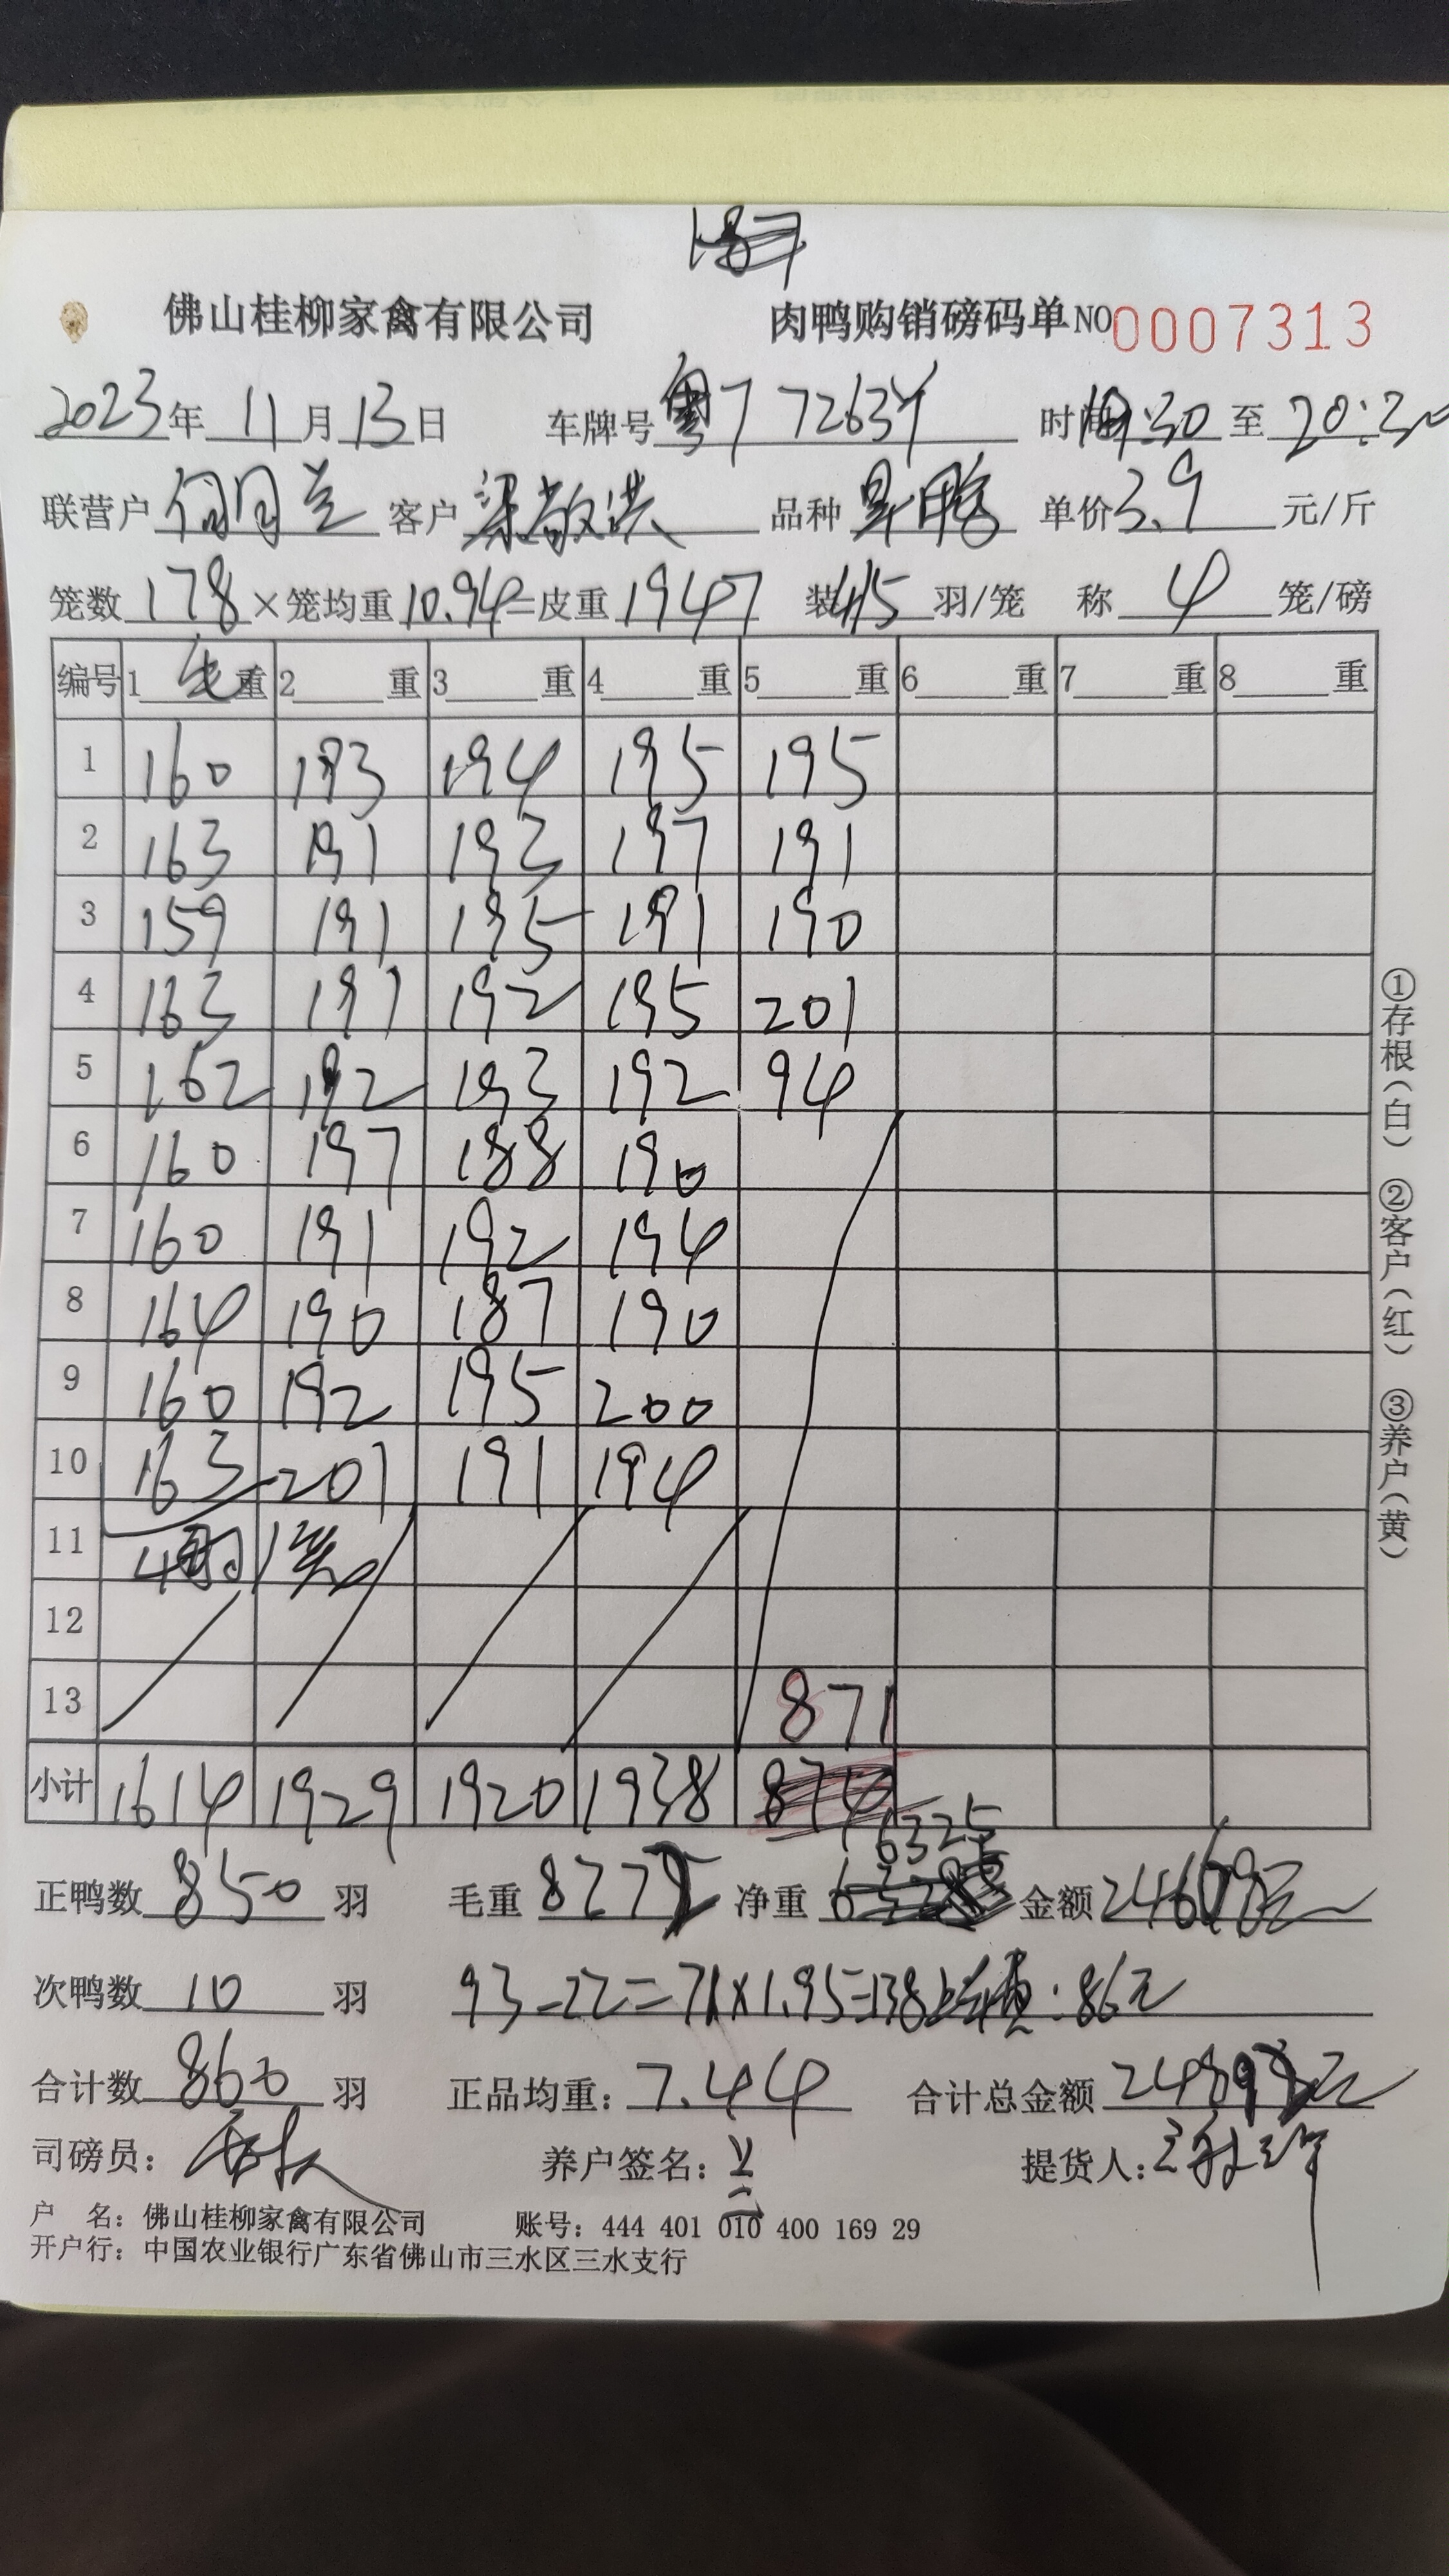 佛山桂柳家禽有限公司 肉鸭购销磅码单 NO 0007313
2023年 11月 13日 车牌号 粤 7263Y 时间 :30 至 20:30
联营户 客户 梁敬洪 品种 单价 3.9 元/斤
笼数 178 ×笼均重 10.94 =皮重 1947 装 4/5 羽/笼 称 4 笼/磅
编号 1 重 2 重 3 重 4 重 5 重 6 重 7 重 8 重
1 160 193 194 195 195
2 163 191 193 197 191
3 159 191 195 191 190
4 163 191 192 195 201
5 162 192 193 192 94
6 160 197 188 190
7 160 191 192 194
8 164 190 187 190
9 160 192 195 200
10 163 201 191 194
11
12
13 871
小计 1614 1929 1920 1938
6325
正鸭数 850 羽 毛重 8272 净重 金额
次鸭数 10 羽 93-22=71×1.95=138 : 86元
合计数 860 羽 正品均重: 7.44 合计总金额
司磅员: 养户签名: 提货人:
户 名: 佛山桂柳家禽有限公司 账号: 444 401 010 400 169 29
开户行: 中国农业银行广东省佛山市三水区三水支行
①存根(白) ②客户(红) ③养户(黄)